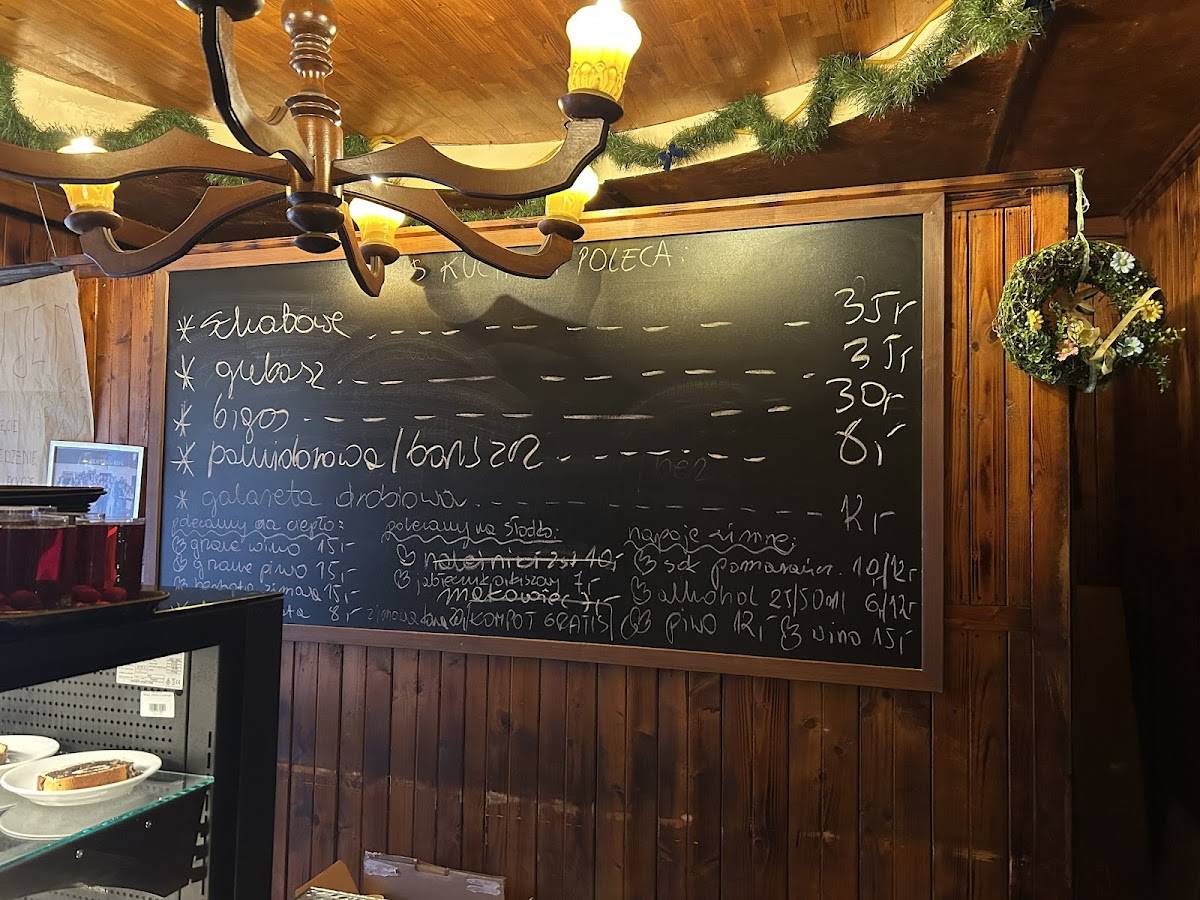 POLECA:
* schabowe 35,-
* gulasz 35,-
* bigos 30,-
* pomidorowa/barszcz 8,-
* galareta drobiowa 12,-
polecamy na ciepło:
grzane wino 15,-
grzane piwo 15,-
herbata zimowa 15,-
8,-
polecamy na słodko:
naleśniki 2szt 10,-
jabłecznik, orkiszowy 7,-
makowiec 7,-
zimowa KOMPOT GRATIS
napoje zimne:
sok pomarańcz. 10/12,-
alkohol 25/50ml 6/12,-
piwo 12,- wino 15,-
JEM